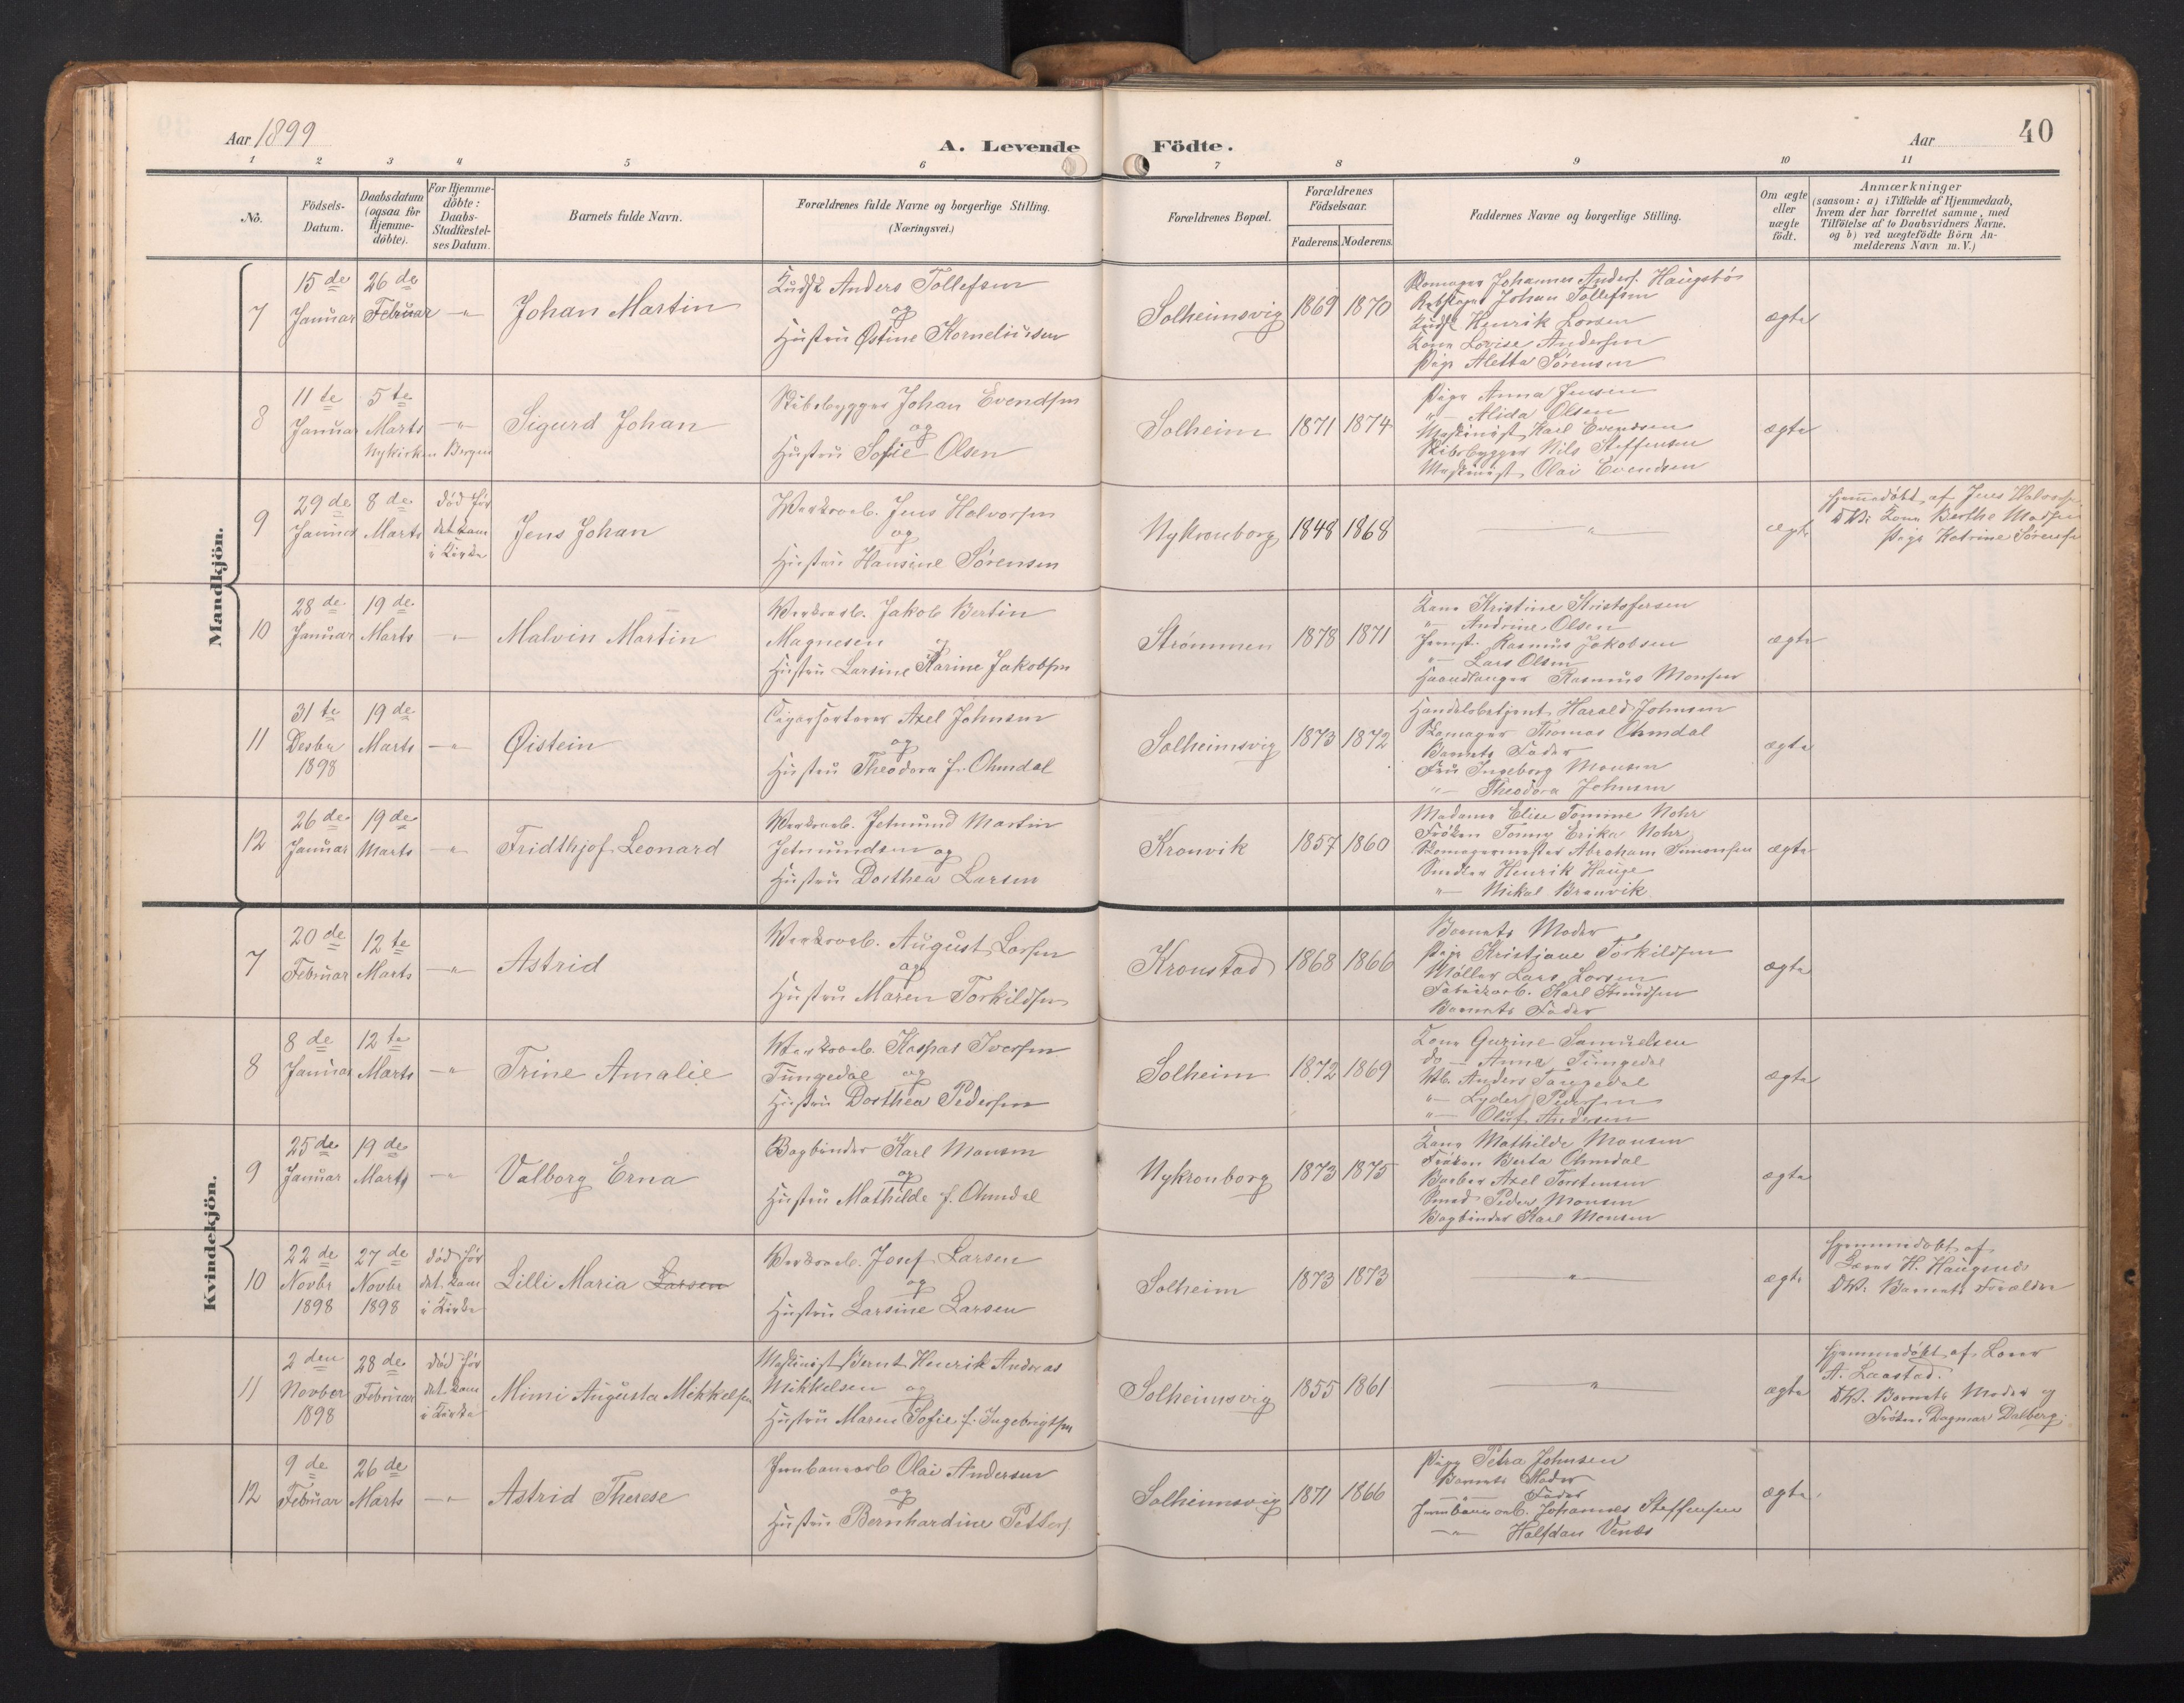 Aar 1899
A. Levende Födte.
Aar
40
1 2 3 4 5 6 7 8 9 10 11
No.
Födsels-Datum.
Daabsdatum (ogsaa for Hjemme-döbte).
For Hjemme-döbte: Daabs-Stadfæstel-ses Datum.
Barnets fulde Navn.
Forældrenes fulde Navne og borgerlige Stilling.
(Næringsvei.)
Forældrenes Bopæl.
Forældrenes Födselsaar.
Faderens. Moderens.
Faddernes Navne og borgerlige Stilling.
Om ægte eller uægte födt.
Anmærkninger
(saasom: a) i Tilfælde af Hjemmedaab,
hvem der har forrettet samme, med
Tilföielse af to Daabsvidners Navne,
og b) ved uægtefödte Börn An-
melderens Navn m. V.)
Mandkjön.
7
15de Januar
26de Februar
-"-
Johan Martin
Anders Tollefsen
og
Hustru Østine Korneliussen
Solheimsvig
1869 1870
Skomager Johannes Anders. Haugsbø
Johan Tollefsen
Henrik Larsen
Kone Lovise Andersen
Pige Aletta Sørensen
ægte
8
11te Januar
5te Marts
Nykirken Bergen
-"-
Sigurd Johan
Skibsbygger Johan Evendsen
og
Hustru Sofie Olsen
Solheim
1871 1874
Pige Anna Jensen
"- Alida Olsen
Maskinist Karl Evendsen
Skibsbygger Nils Steffensen
Maskinist Olai Evendsen
ægte
9
29de Januar
8de Marts
død før det kom i Kirke
Jens Johan
Værksarb. Jens Halvorsen
og
Hustru Hansine Sørensen
Nykronborg
1848 1868
-"-
ægte
Hjemmedøbt af Jens Halvorsen
DV: Kone Berthe Madsen
Pige Katrine Sørensen
10
28de Januar
19de Marts
-"-
Malvin Martin
Værksarb. Jakob Bertin
Magnesen og
Hustru Larsine Karine Jakobsen
Strømmen
1878 1871
Kone Kristine Kristofersen
"- Andrine Olsen
Rasmus Jakobsen
"- Lars Olsen
Haandlanger Rasmus Monsen
ægte
11
31te Desbr 1898
19de Marts
-"-
Øistein
Cigarsorterer Axel Johnsen
og
Hustru Theodora f. Ohmdal
Solheimsvig
1873 1872
Handelsbetjent Harald Johnsen
Skomager Thomas Ohmdal
Barnets Fader
Fru Ingeborg Monsen
"- Theodora Johnsen
ægte
12
26de Januar
19de Marts
-"-
Fridthjof Leonard
Værksarb. Jetmund Martin
Jetmundsen og
Hustru Dorthea Larsen
Kronvik
1857 1860
Madame Elise Tomine Nohr
Frøken Tonny Erika Nohr
Skomagermester Abraham Simonsen
Snedker Henrik Hauge
"- Mikal Brenvik
ægte
Kvindekjön.
7
20de Februar
12te Marts
-"-
Astrid
Værksarb. August Larsen
og
Hustru Maren Torkildsen
Kronstad
1868 1866
Barnets Moder
Pige Kristiane Torkildsen
Møller Lars Larsen
Fabrikarb. Karl Knudsen
Barnets Fader
ægte
8
8de Januar
12te Marts
-"-
Trine Amalie
Værksarb. Kaspar Iversen
Tungedal og
Hustru Dorthea Pedersen
Solheim
1872 1869
Kone Gurine Samuelsen
do- Anna Tungedal
Anders Tungedal
"- Lyder Pedersen
"- Oluf Andersen
ægte
9
25de Januar
19de Marts
-"-
Valborg Erna
Bogbinder Karl Monsen
og
Hustru Mathilde f. Ohmdal
Nykronborg
1873 1875
Kone Mathilde Monsen
Frøken Berta Ohmdal
Barber Axel Torstensen
Smed Peder Monsen
Bogbinder Karl Monsen
ægte
10
22de Novbr 1898
27de Novbr 1898
død før det kom i Kirke
Lilli Maria Larsen
Værksarb. Josef Larsen
og
Hustru Larsine Larsen
Solheim
1873 1873
-"-
ægte
Hjemmedøbt af
Lærer H. Haugsnes
DV. Barnets Forældre
11
2den Novber 1898
28de Februar
død før det kom i Kirke
Mimi Augusta Mikkelsen
Maskinist Bernt Henrik Andreas
Mikkelsen og
Hustru Maren Sofie f. Ingebrigtsen
Solheimsvig
1855 1861
-"-
ægte
Hjemmedøbt af Lærer
A. Laastad.
DV. Barnets Moder og
Frøken Dagmar Dalberg.
12
9de Februar
26de Marts
-"-
Astrid Therese
Jernbanearb Olai Andersen
og
Hustru Bernhardine Petters.
Solheimsvig
1871 1866
Pige Petra Johnsen
Barnets Moder
-"- Fader
Jernbanearb. Johannes Steffensen
-"- Halfdan Venes
ægte